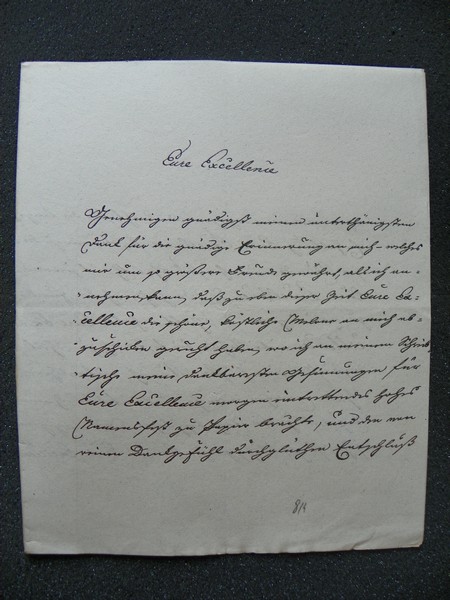 Eure Excellence
Genehmigen gnädigst meinen unterthänigsten
Dank für die gnädige Erinnerung an mich – welches
mir um so größere Freude gewährt, als ich an-
nehmen kann, daß zu eben dieser Zeit Eure Ex-
cellence die schöne, köstliche Melone an mich ab-
zuschicken geruht haben, wo ich an meinem Schreib
tische meine dankbarsten Gesinnungen für
Eure Excellence morgen eintretendes hohes
Namensfest zu Papier brachte, und den von
reinem Dankgefühl durchglühten Entschluß